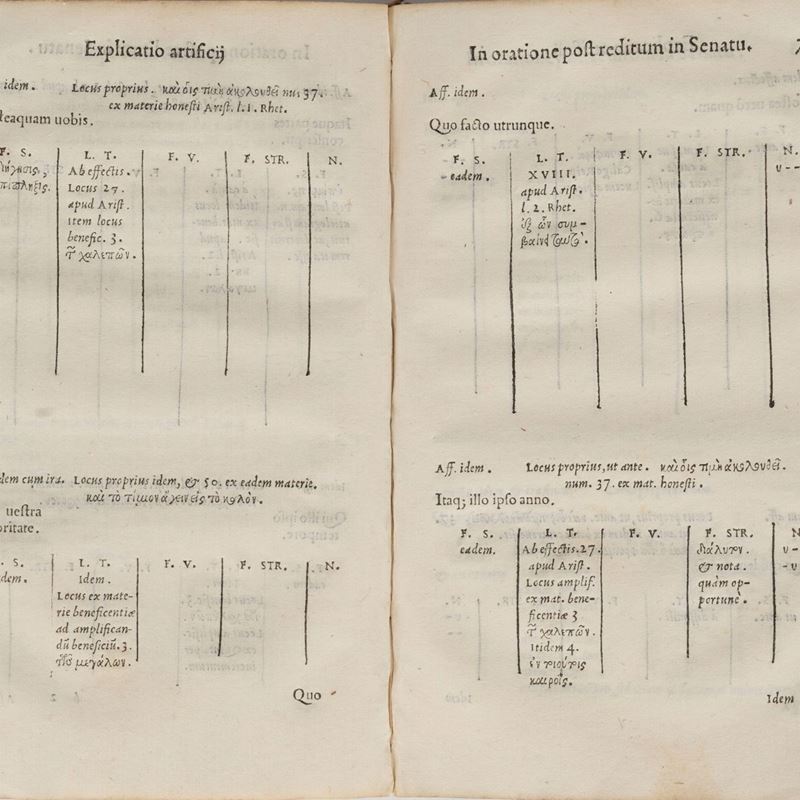 Explicatio artificij
idem. Locus proprius. καὶ οἷς τιμὴ ἀκολουθεῖ nu 37.
ex materie honesti Arist. l. 1. Rhet.
teaquam uobis.
F. S. L. T. F. V. F. STR. N.
Ab effectis.
Locus 27.
apud Arist.
item locus
benefic. 3.
χαλεπῶν.
dem cum ira. Locus proprius idem, & 50. ex eadem materie.
καὶ τὸ
uestra
oritate.
S. L. T. F. V. F. STR. N.
dem. Idem.
Locus ex mate-
rie beneficentiæ
ad amplifican-
dũ beneficiũ. 3.
μεγάλων.
Quo
In oratione post reditum in Senatu.
Aff. idem.
Quo facto utrunque.
F. S. L. T. F. V. F. STR. N.
eadem. XVIII. υ--
apud Arist.
l. 2. Rhet.
ἐξ ὧν συμ-
Aff. idem. Locus proprius, ut ante. καὶ οἷς τιμὴ ἀκολουθεῖ.
num. 37. ex mat. honesti.
Itaq; illo ipso anno.
F. S. L. T. F. V. F. STR. N.
eadem. Ab effectis. 27. διάλυτον. υ-
apud Arist. & nota. -υ
Locus amplif. quàm op-
ex mat. bene- portunè.
ficentiæ 3
χαλεπῶν.
Itidem 4.
ἐν
καιροῖς.
Idem